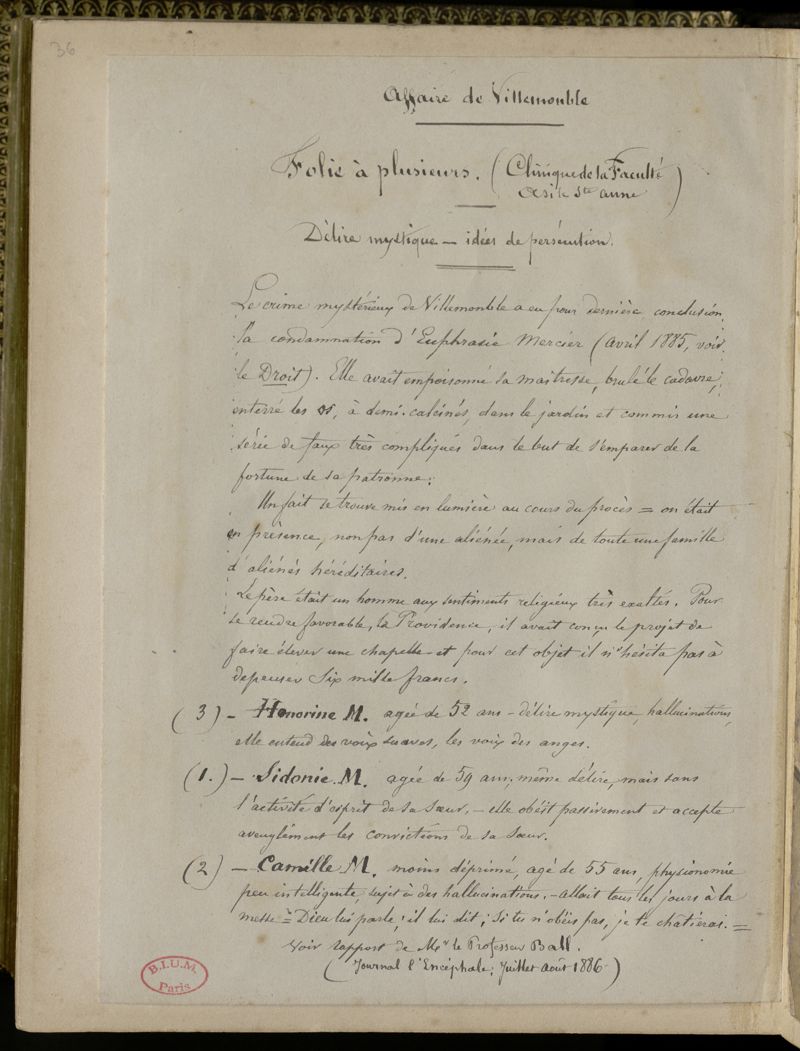 36
Affaire de Villemonble
Folie à plusieurs. (Clinique de la Faculté
Asile Ste anne)
Délire mystique — idées de persécution.
Le crime mystérieux de Villemonble a eu pour dernière conclusion
la condamnation d'Euphrasie Mercier (avril 1885, voir
le Droit). Elle avait empoisonné sa maîtresse, brulé le cadavre,
enterré les os, à demi-calcinés, dans le jardin et commis une
série de faux très compliqués dans le but de s'emparer de la
fortune de sa patronne.
Un fait se trouve mis en lumière au cours du procès = on était
en présence, non pas d'une aliénée, mais de toute une famille
d'aliénés héréditaires.
Le père était un homme aux sentiments religieux très exaltés. Pour
se rendre favorable, la Providence, il avait conçu le projet de
faire élever une chapelle et pour cet objet il n'hésita pas à
dépenser Six mille francs.
(3) — Honorine M. agée de 52 ans — délire mystique, hallucinations,
elle entend des voix suaves, les voix des anges.
(1.) — Sidonie M. agée de 59 ans, même délire, mais sans
l'activité d'esprit de sa sœur. — elle obéit passivement et accepte
aveuglément les convictions de sa sœur.
(2) — Camille M. moins déprimé, agé de 55 ans, physionomie
peu intelligente, sujet à des hallucinations. — Allait tous les jours à la
messe = Dieu lui parle; il lui dit; Si tu n'obéis pas, je te chatierai. =
Voir rapport de Mr le Professeur Ball.
(Journal l'Encéphale; Juillet Août 1886)
B.I.U.M.
Paris